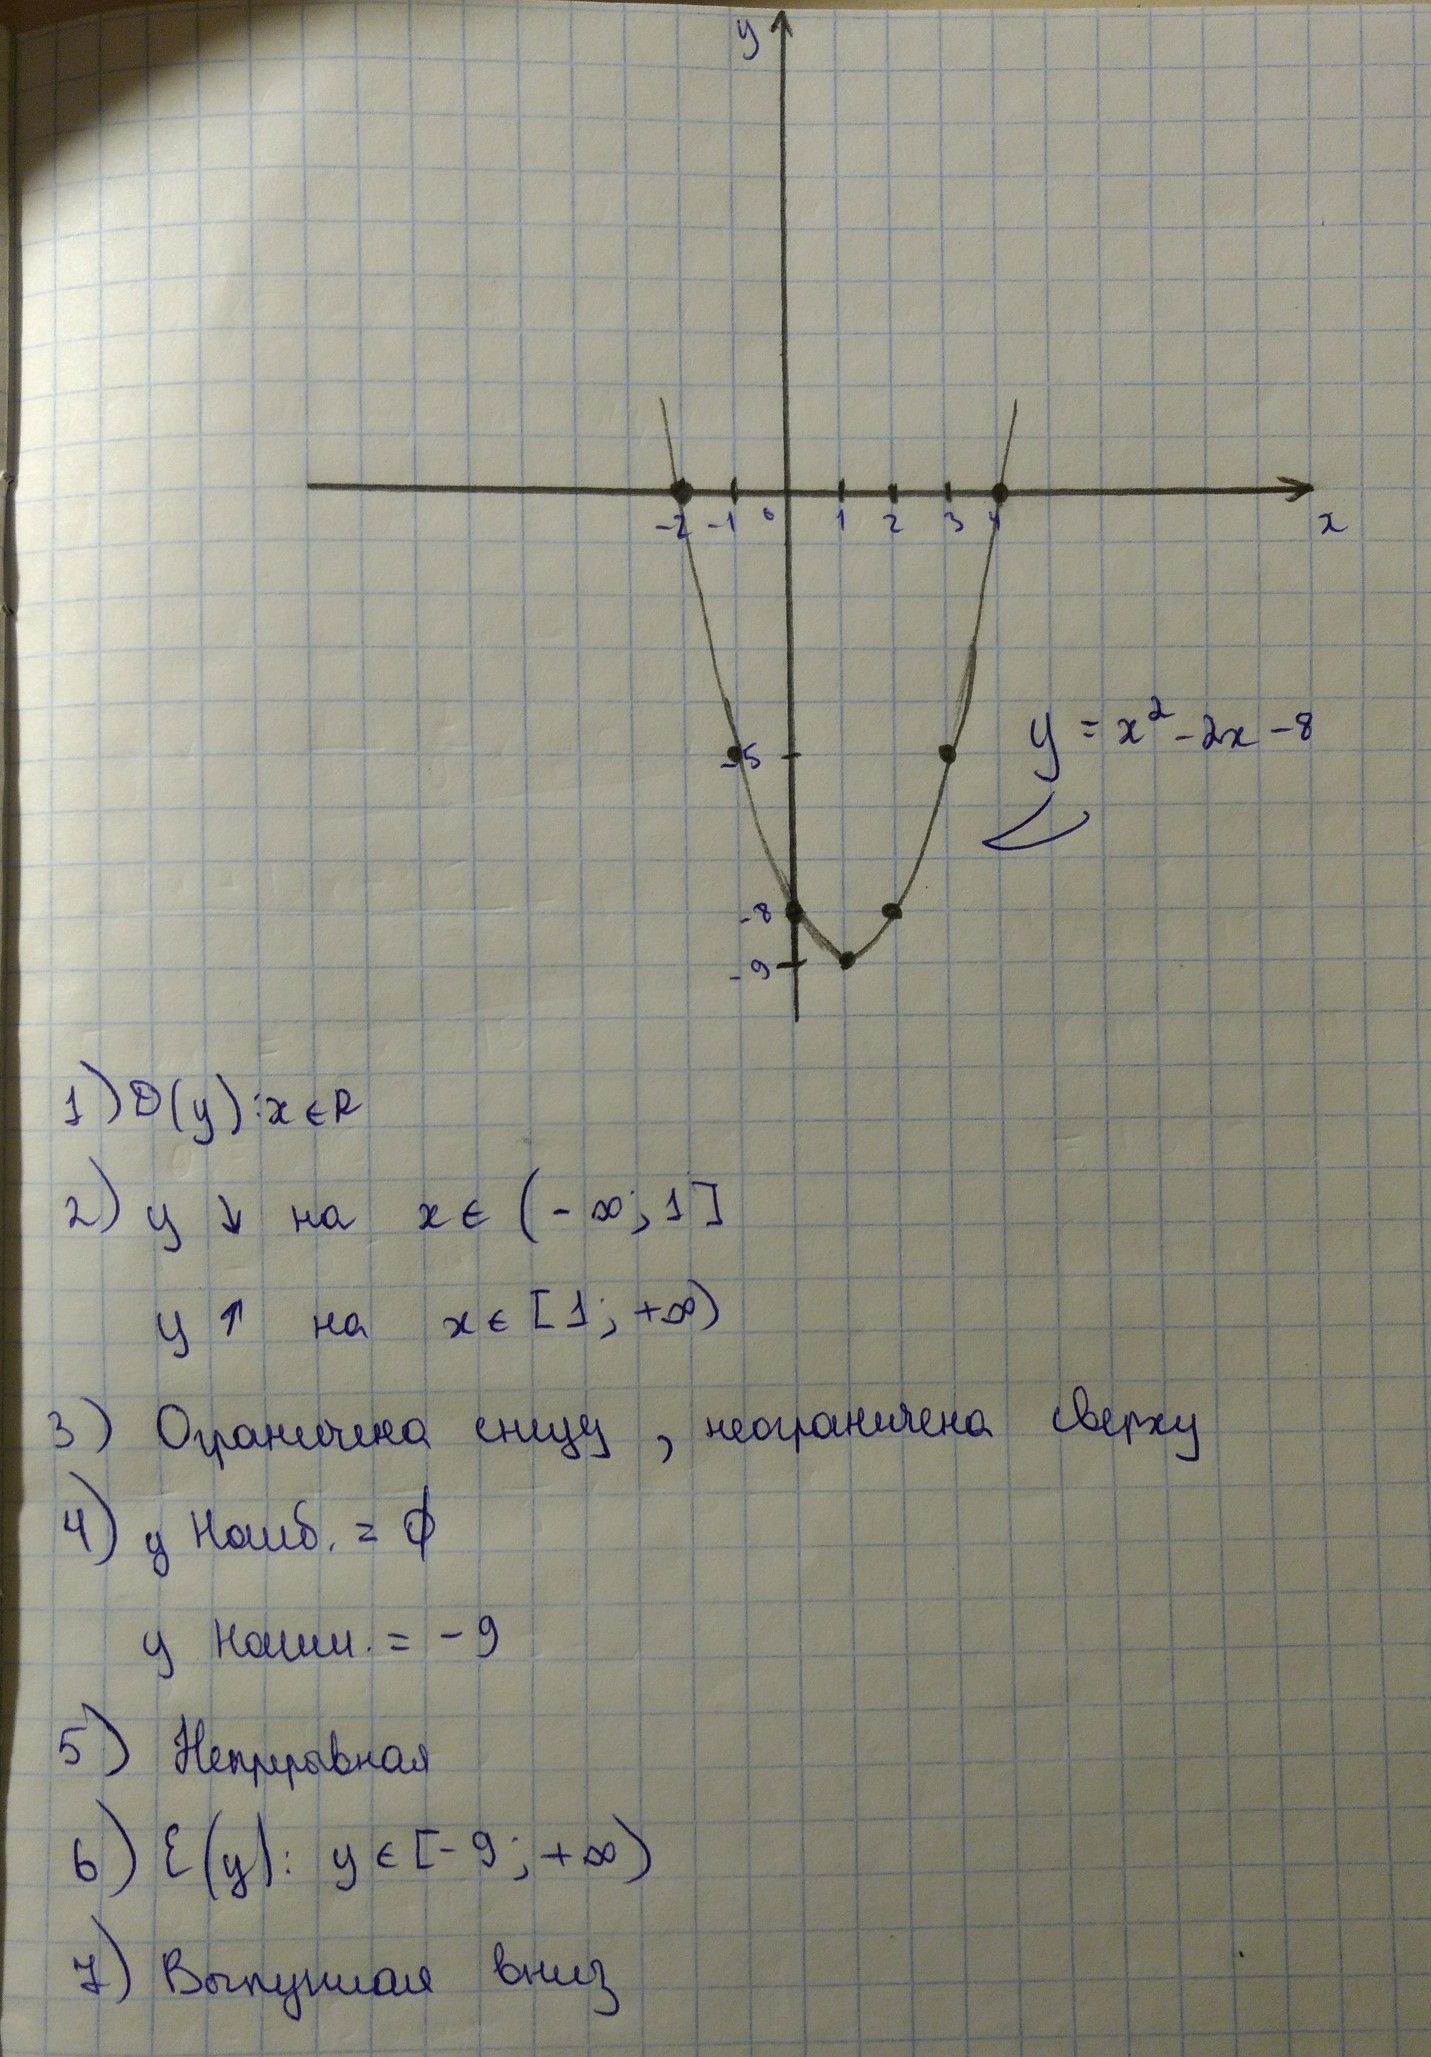 y
-2 -1 0 1 2 3 4 x
-5
y = x² - 2x - 8
-8
-9
1) D(y): x ∈ R
2) y ↓ на x ∈ (-∞; 1]
y ↑ на x ∈ [1; +∞)
3) Ограничена снизу, неограничена сверху
4) y наиб. = ∅
y наим. = -9
5) Непрерывная
6) E(y): y ∈ [-9; +∞)
7) Выпуклая вниз